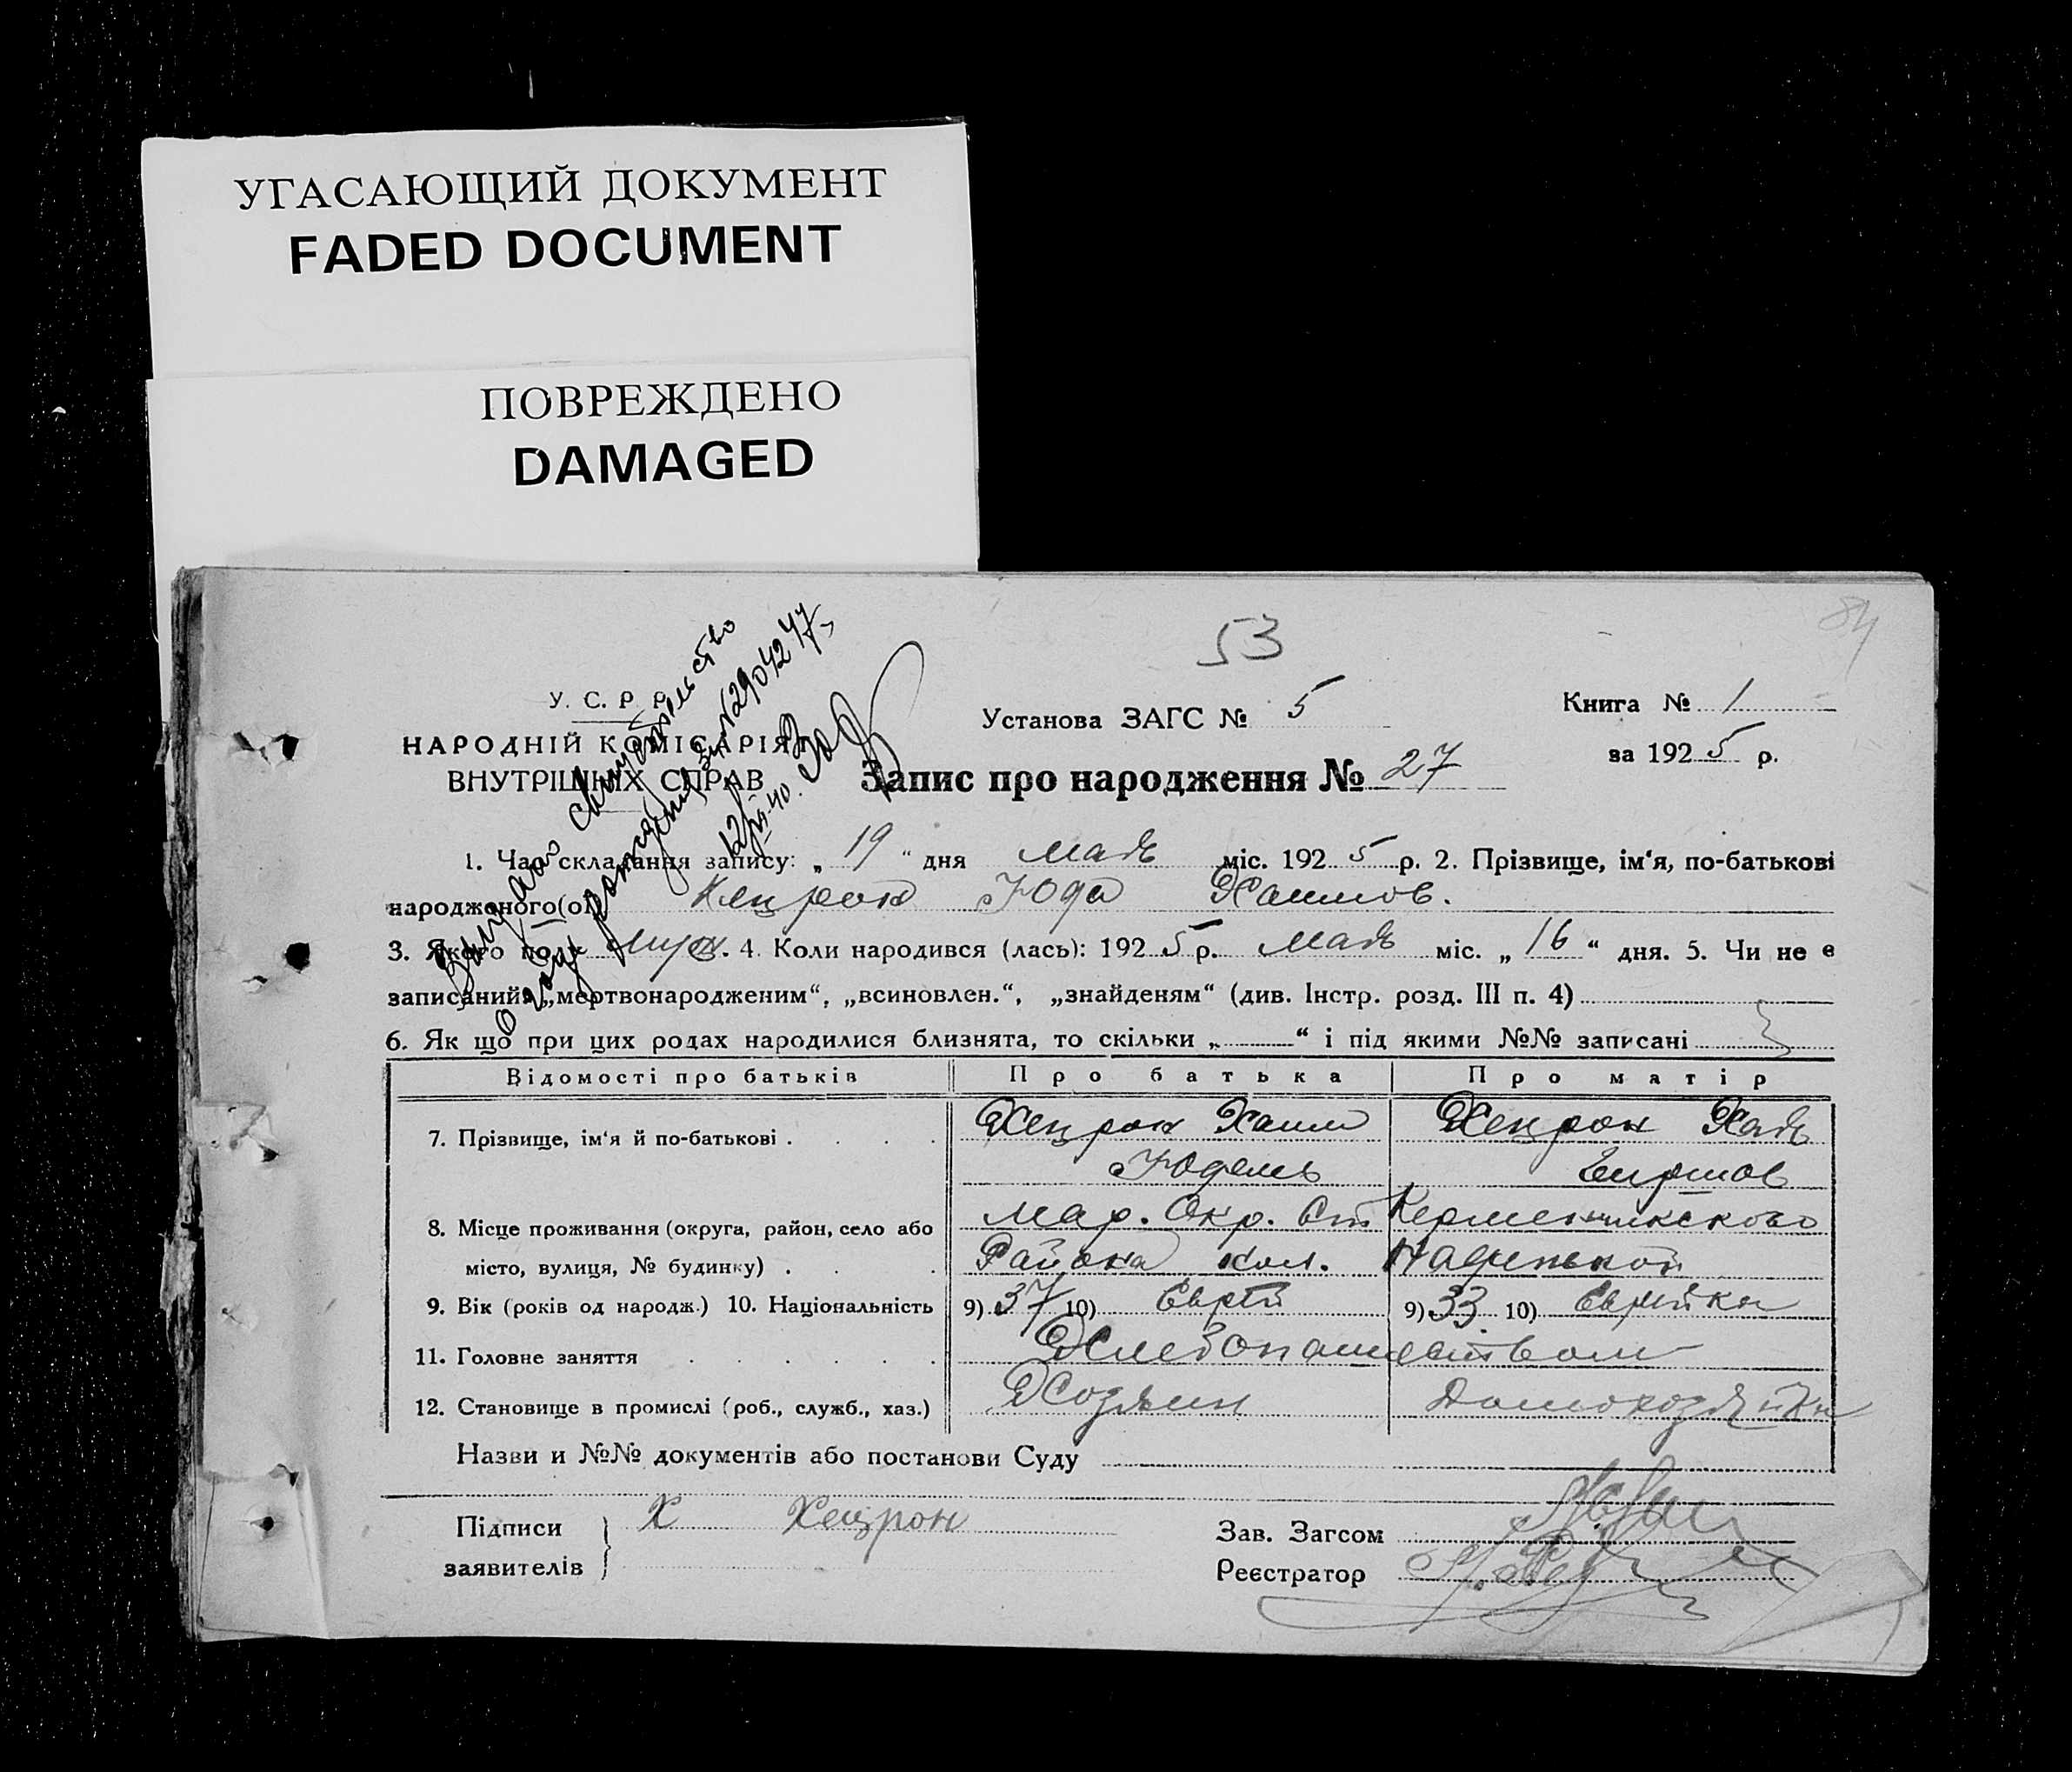 УГАСАЮЩИЙ ДОКУМЕНТ
FADED DOCUMENT
ПОВРЕЖДЕНО
DAMAGED
84
53
У. С. Р. Р.
НАРОДНІЙ КОМІСАРІЯТ
ВНУТРІШНІХ СПРАВ
Установа ЗАГС № 5
Книга № 1
за 1925 р.
Запис про народження № 27
свидетельство
о рождении №290424
1. Час складання запису: „ 19 “ дня Мая міс. 1925 р. 2. Прізвище, ім‘я, по-батькові
народженого(ої) Хецрон Юда Хаимов.
3. Якого полу муж. 4. Коли народився (лась): 1925 р. Мая міс. „ 16 “ дня. 5. Чи не є
записаний: „мертвонародженим“, „всиновлен.“, „знайденям“ (див. Інстр. розд. III п. 4)
6. Як що при цих родах народилися близнята, то скільки „ “ і під якими №№ записані
Відомості про батьків Про батька Про матір
7. Прізвище, ім‘я й по-батькові . Хецрон Хаим Хецрон Хая
Юдель Гиршов
8. Місце проживання (округа, район, село або Мар. Окр. Ст Керменчиксково
місто, вулиця, № будинку) . Района кол. Надженькой
9. Вік (років од народж.) 10. Національність 9) 37 10) Еврей 9) 33 10) Еврейка
11. Головне заняття Хлебопашеством
12. Становище в промислі (роб., служб., хаз.) Хозяин Домохозяйка
Назви и №№ документів або постанови Суду
Підписи Х Хецрон
заявителів
Зав. Загсом
Реєстратор